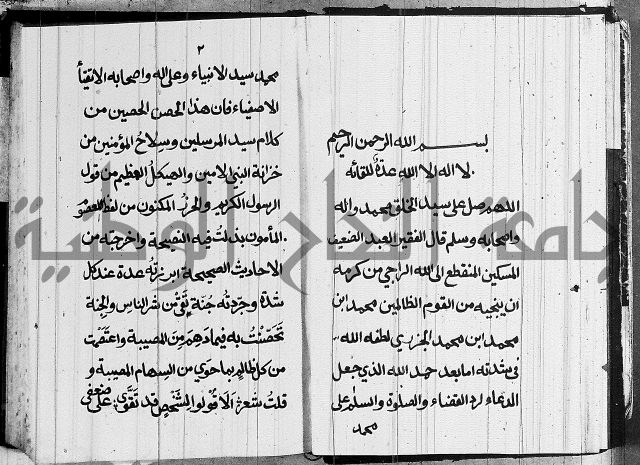 بسم الله الرحمن الرحيم
لا اله الا الله عدة للقائه
اللهم صل على سيد الخلق محمد واله
واصحابه وسلم قال الفقير العبد الضعيف
المسكين المنقطع الى الله الراجي من كرمه
ان ينجيه من القوم الظالمين محمد ابن
محمد ابن محمد الجزري لطفه الله
فى شدته اما بعد حمد الله الذي جعل
الدعاء لرد القضاء والصلوة والسلام على
محمد
٢
محمد سيد الانبياء وعلى اله واصحابه الاتقيأ
الاصفياء فان هذا الحصن الحصين من
كلام سيد المرسلين وسلاح المؤمنين من
خزانة النبي الامين والهيكل العظيم من قول
الرسول الكريم والحرز المكنون من لفظ المعصوم
المأمون بذلت فيه النصيحة واخرجته من
الاحاديث الصحيحة ابرزته عدة عند كل
شدة وجردته جنة تقى من شر الناس والجنة
تحصنت به فيما دهم من المصيبة واعتصمت
من كل ظالم بما حوى من السهام المصيبة و
قلت شعر الا قولوا لشخص قد تقوى على ضعفي
جامعة النجاح الوطنية